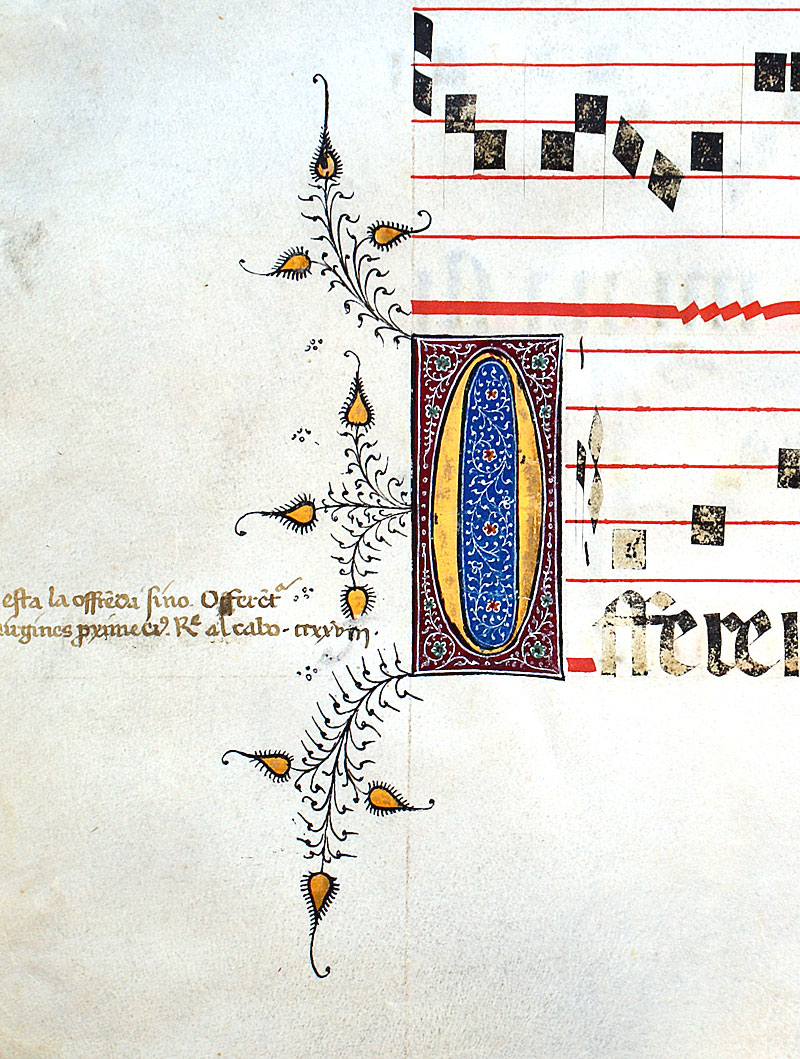 esta la offrēda sino. Offerētᷓ
uirgines pxime ei⁹. Rᵉ al cabo. ccxxviij.
Offeren